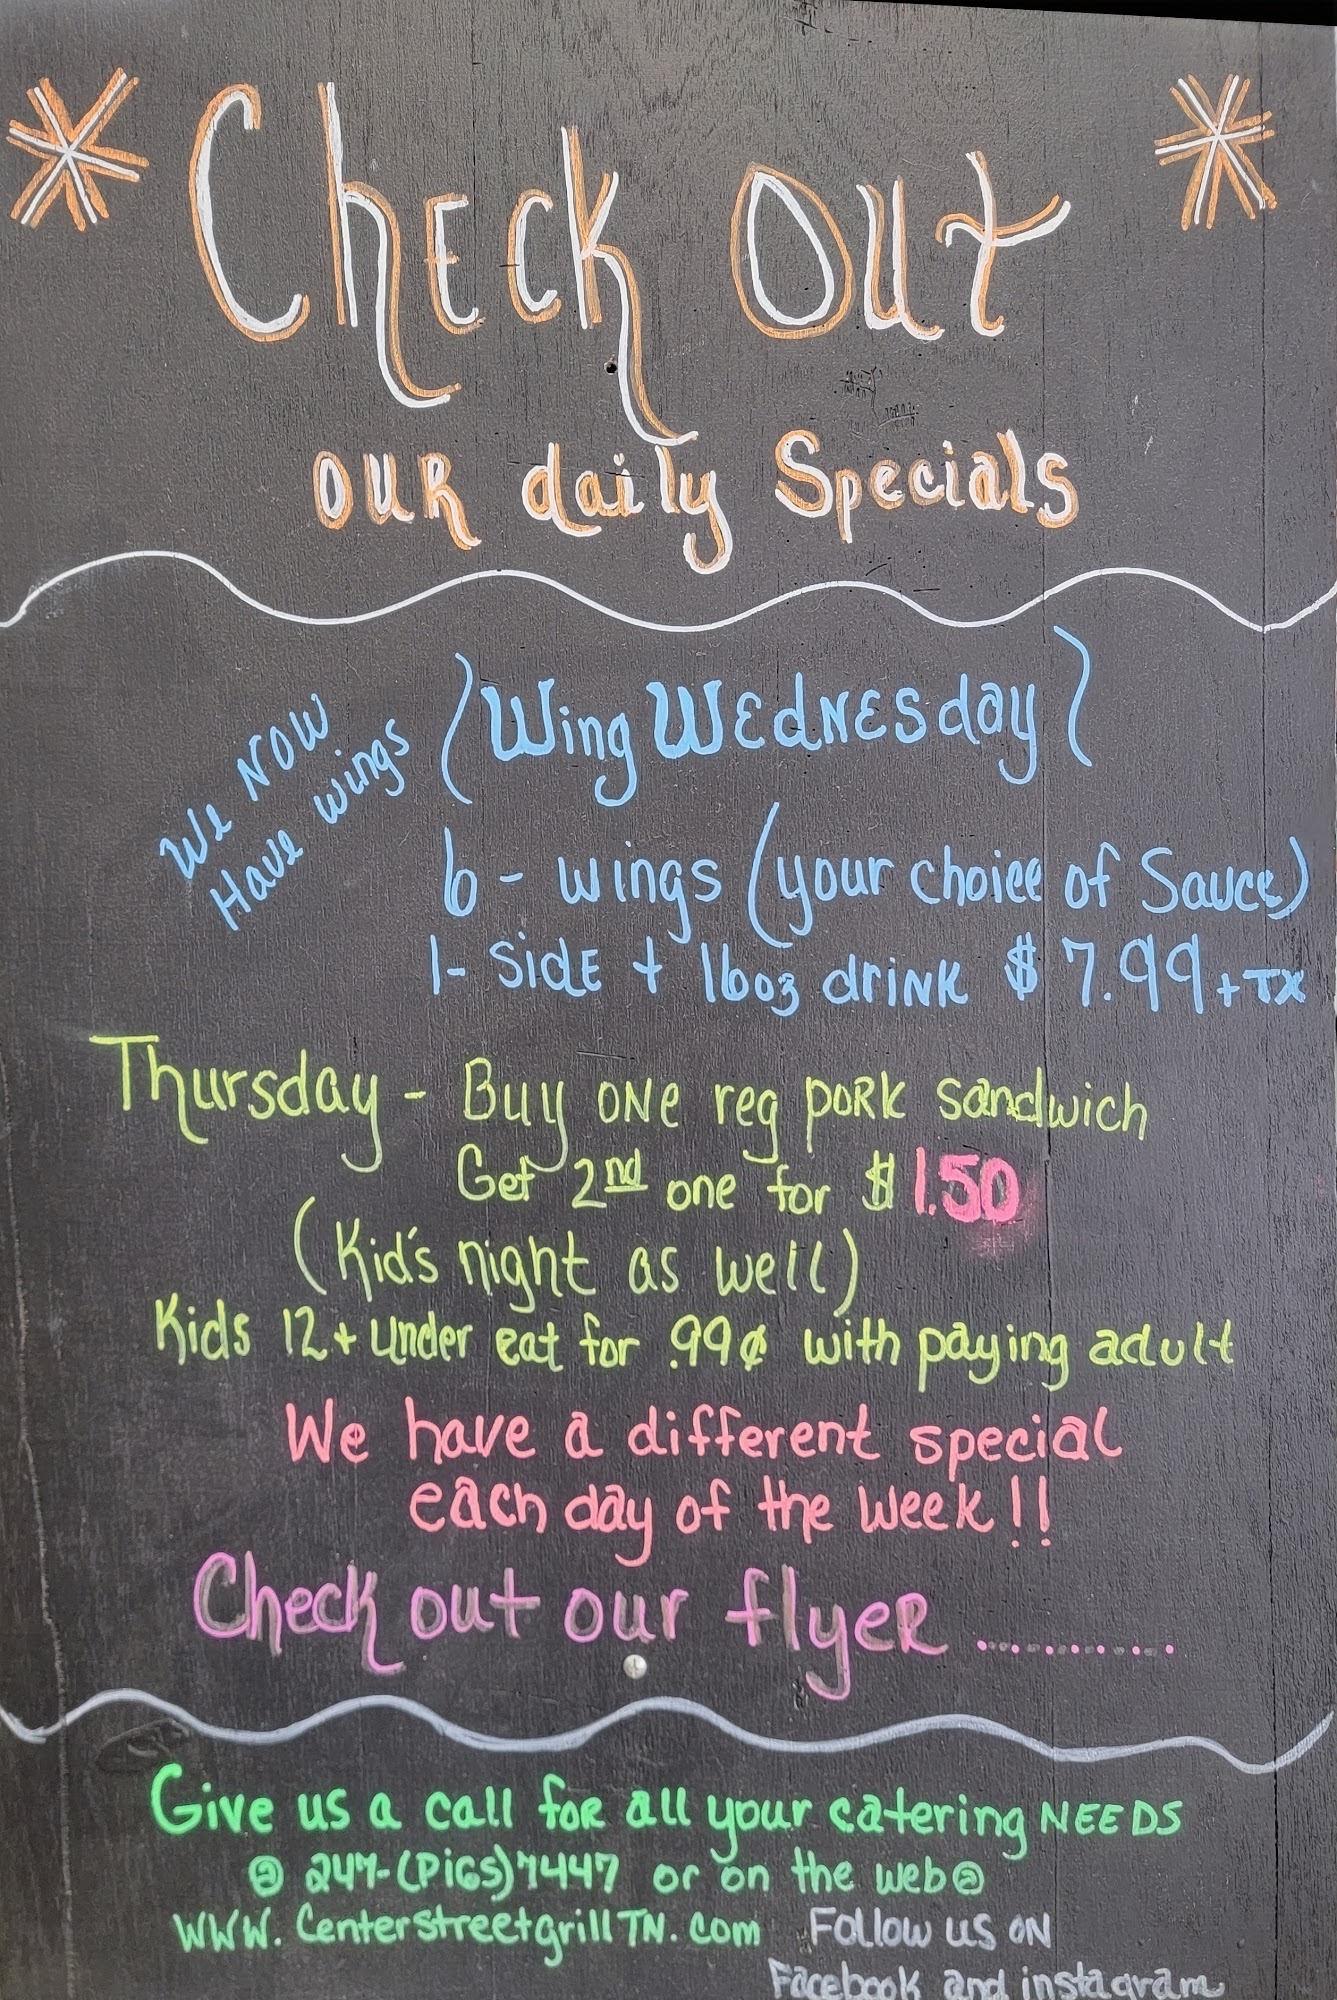 Check Out
our daily Specials
We NOW
Have wings
(Wing Wednesday)
6 - wings (your choice of Sauce)
1- Side + 16oz drink $7.99 + TX
Thursday - Buy one reg pork sandwich
Get 2nd one for $1.50
(Kid's night as well)
Kids 12 + under eat for .99¢ with paying adult
We have a different special
each day of the week!!
Check out our flyer ............
Give us a call for all your catering NEEDS
@ 247-(PIGS)7447 or on the web @
WWW.CenterstreetgrillTN.com Follow us on
Facebook and instagram